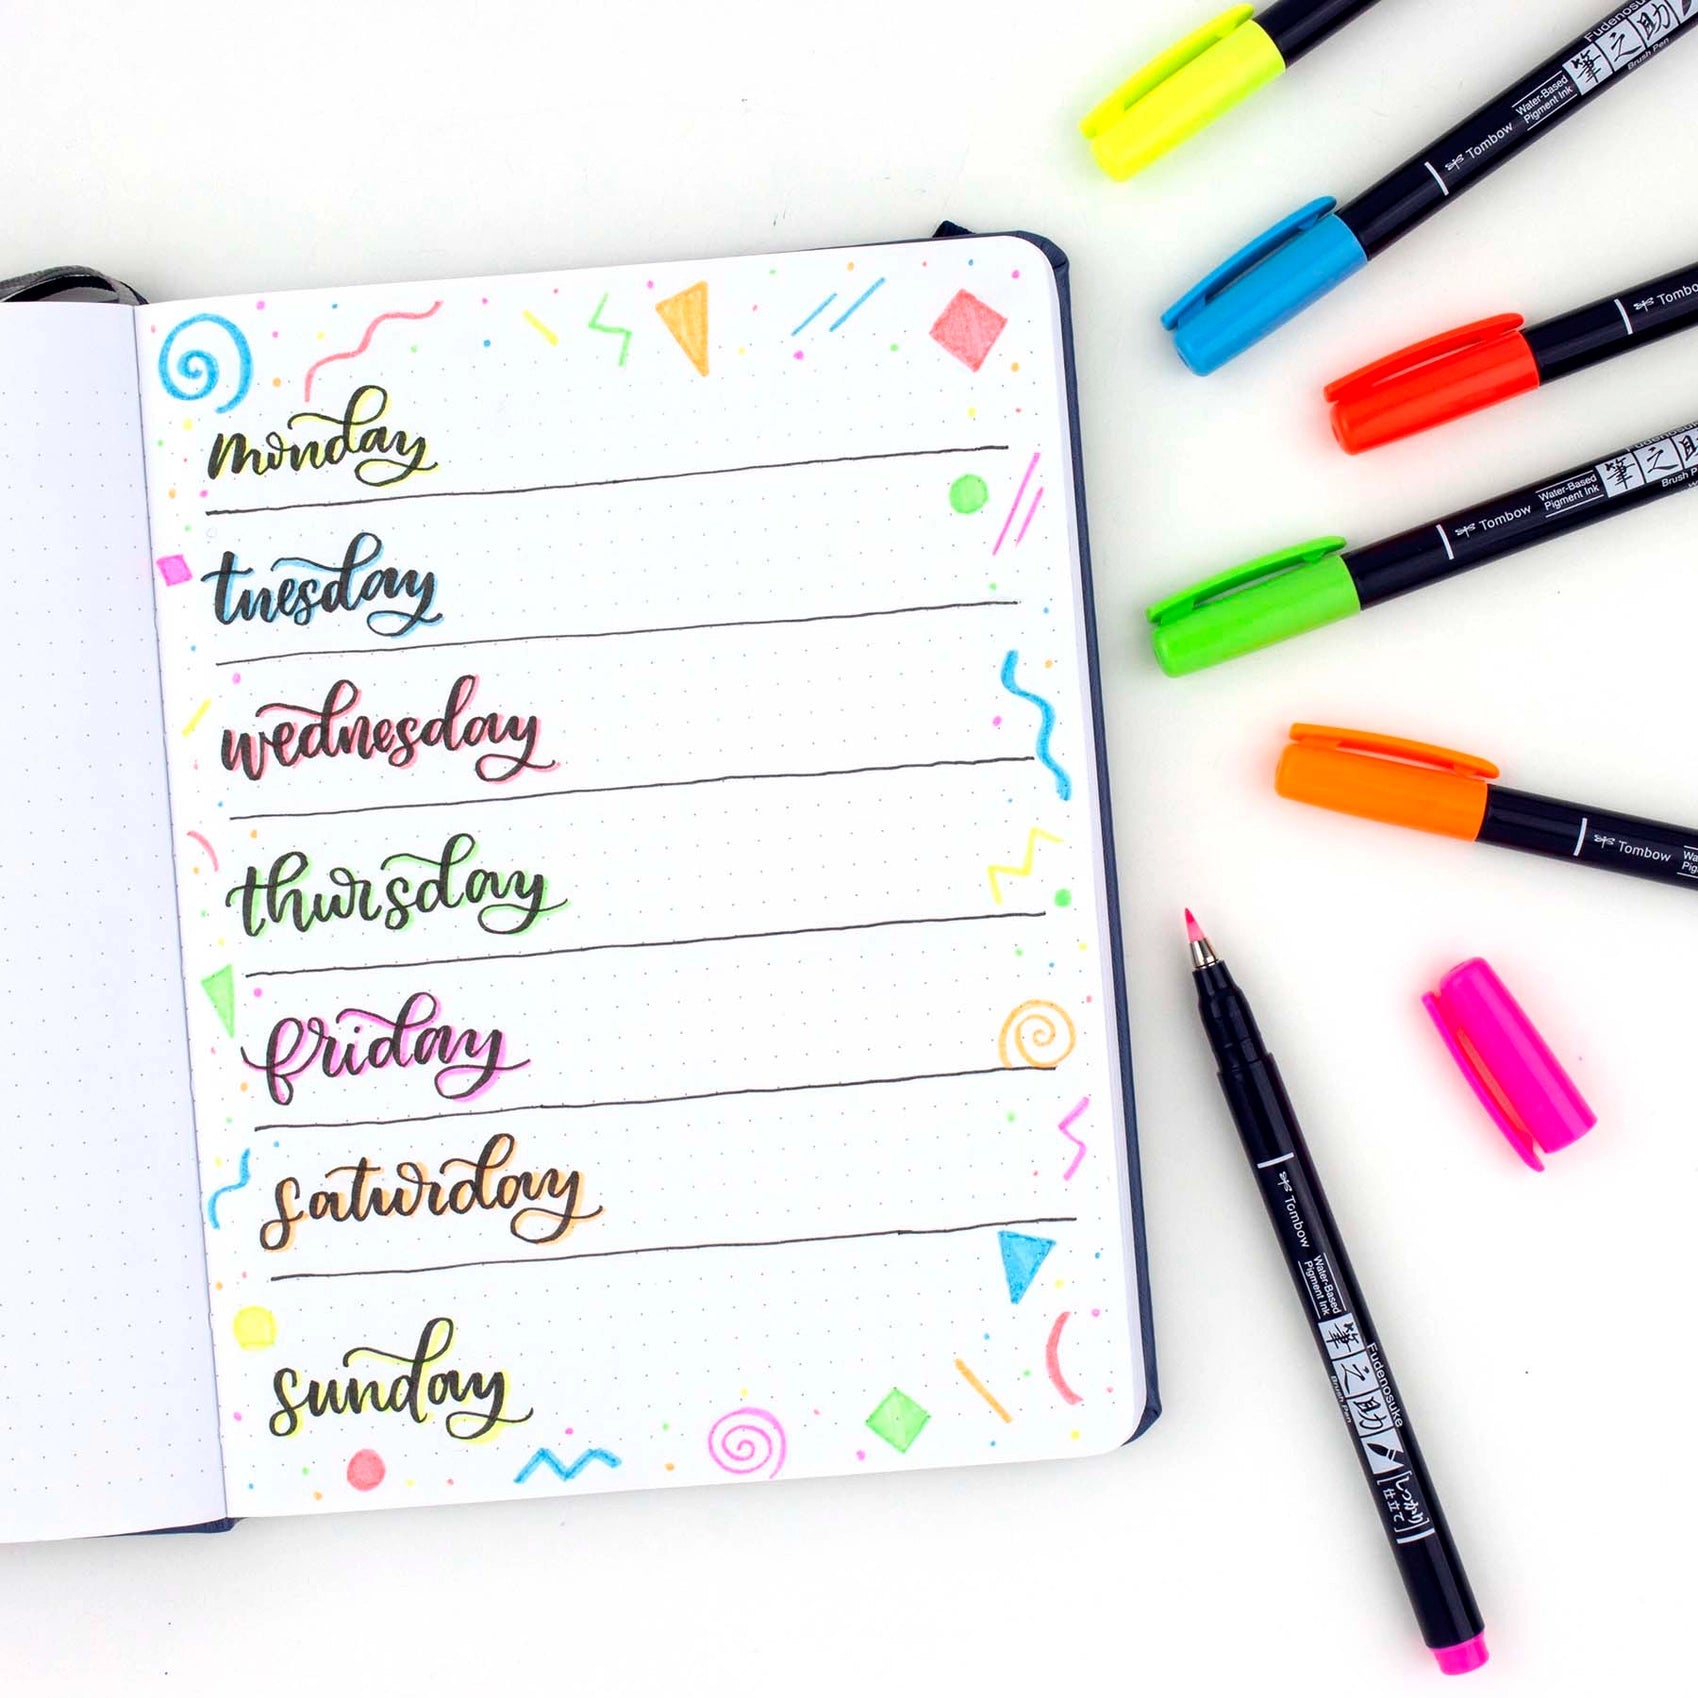 monday
tuesday
wednesday
thursday
friday
saturday
sunday
Fudenosuke
筆之助
Brush Pen
Water-Based
Pigment Ink
Tombow
Tombow
Fudenosuke
筆之助
Water-Based
Pigment Ink
Tombow
Tombow
Tombow
Water-Based
Pigment Ink
筆之助
Fudenosuke
Brush Pen